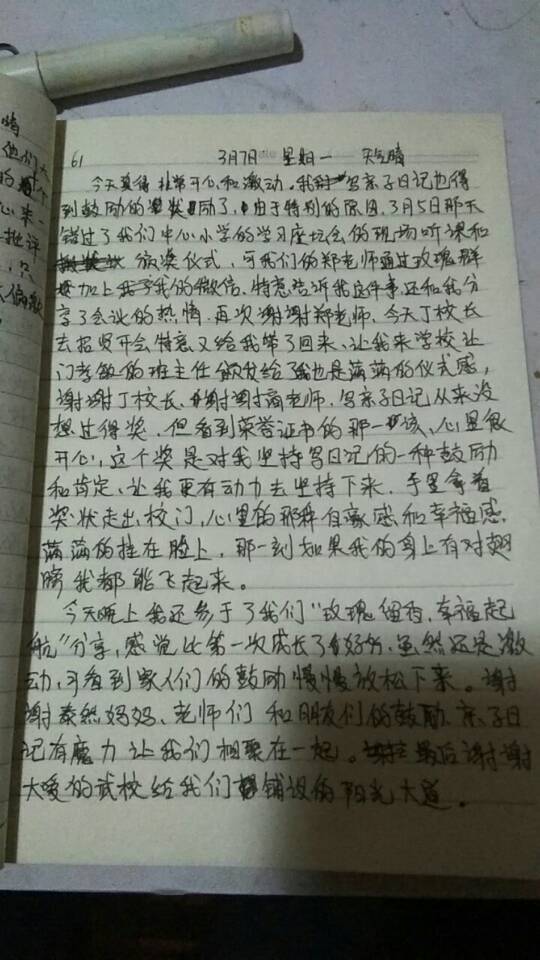 61 3月7日 星期一 天气晴
今天真得非常开心和激动。我写亲子日记也得
到鼓励的奖励了,由于特别的原因,3月5日那天
错过了我们中心小学的学习座坛会的现场听课和
颁奖仪式,可我们的郑老师通过玫瑰群
加上我的微信,特意告诉我这件事还和我分
享了会议的热情。再次谢谢郑老师,今天丁校长
去招贤开会特意又给我带了回来、让我来学校让
门孝敏的班主任颁发给了我也是满满的仪式感,
谢谢丁校长、谢谢商老师,写亲子日记从来没
想过得奖,但看到荣誉证书的那一该,心里很
开心,这个奖是对我坚持写日记的一种鼓励
和肯定、让我更有动力去坚持下来,手里拿着
奖状走出校门,心里的那种自豪感和幸福感
满满的挂在脸上,那一刻如果我的身上有对翅
膀我都能飞起来。
今天晚上我还参于了我们"玫瑰留香,幸福起
航"分享,感觉比第一次成长了好好,虽然还是激
动,可看到家人们的鼓励慢慢放松下来。谢
谢泰然妈妈、老师们和朋友们的鼓励、亲子日
记有魔力让我们相聚在一起。最后谢谢
大爱的武校给我们铺设的阳光大道。
心来
批评